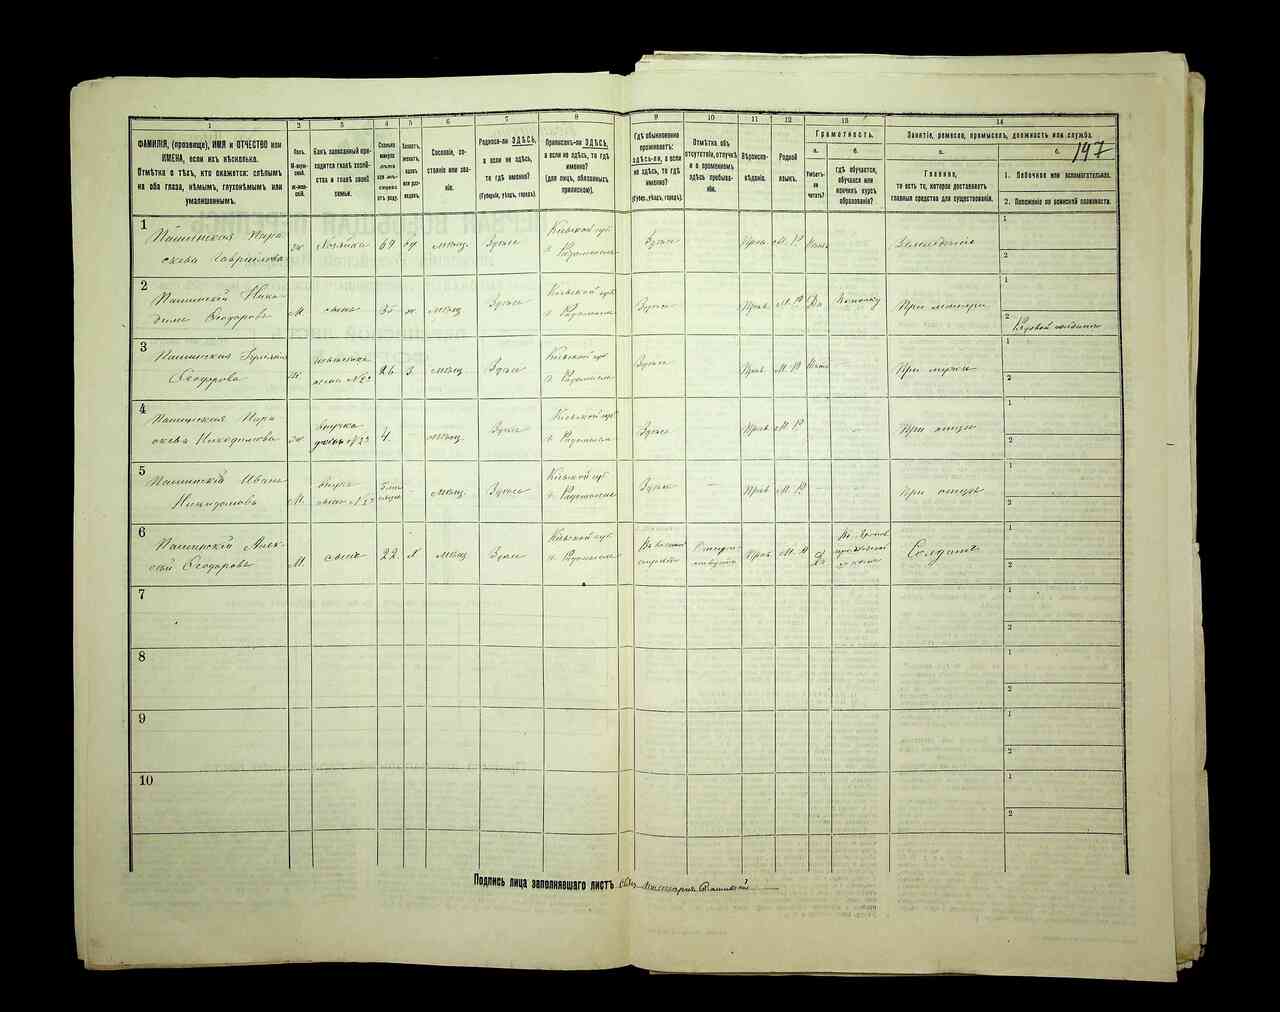 1
2
3
4
5
6
7
8
9
10
11
12
13
14
ФАМИЛІЯ, (прозвище), ИМЯ и ОТЧЕСТВО или
ИМЕНА, если ихъ нѣсколько.
Отмѣтка о тѣхъ, кто окажется: слѣпымъ
на оба глаза, нѣмымъ, глухонѣмымъ или
умалишеннымъ.
Полъ.
Какъ записанный при-
ходится главѣ хозяй-
ства и главѣ своей
семьи.
Сословіе, со-
стояніе или зва-
ніе.
Родился-ли ЗДѢСЬ,
а если не здѣсь,
то гдѣ именно?
(Губернія, уѣздъ, городъ).
Приписанъ-ли ЗДѢСЬ,
а если не здѣсь, то гдѣ
именно?
(для лицъ, обязанныхъ
припискою).
Гдѣ обыкновенно
проживаетъ:
здѣсь-ли, а если
не здѣсь, то гдѣ
именно?
(Губер., уѣздъ, городъ).
Отмѣтка объ
отсутствіи, отлучкѣ
и о временномъ
здѣсь пребыва-
ніи.
Вѣроиспо-
вѣданіе.
Родной
языкъ.
Грамотность.
а.
Умѣетъ-
ли
читать?
б.
гдѣ обучается,
обучался или
кончилъ курсъ
образованія?
Занятіе, ремесло, промыселъ, должность или служба.
а.
Главное,
то есть то, которое доставляетъ
главныя средства для существованія.
б.
197
1. Побочное или вспомогательное.
2. Положеніе по воинской повинности.
1
Пашинская Пара
скева Гавриловна
ж
Хозяйка
69
вд
мѣщ.
Здѣсь
Кіевской губ
г. Радомысль
Здѣсь
Прав.
М. Р
Нѣтъ
1
2
2
Пашинскій Нико-
димъ Ѳеодоровъ
М.
сынъ
35
ж.
мѣщ.
Здѣсь
Кіевской губ
г. Радомысль
Здѣсь
Прав
М. Р
Да
При матери
1
2
Рядовой
3
Пашинская
Ѳеодорова
ж
невѣстка
жена №2º
26
З.
мѣщ
Здѣсь
Кіевской губ
г. Радомысль
Здѣсь
Прав
М. Р
Нѣтъ
При мужѣ
1
2
4
Пашинская Пара
скева Никодимова
ж
внучка
дочь №2º
4
мѣщ.
Здѣсь
Кіевской губ
г. Радомысль
Здѣсь
Прав
М. Р
При отцѣ
1
2
5
Пашинскій Иванъ
Никодимовъ
М.
внукъ
сынъ №2º
мѣщ.
Здѣсь
Кіевской губ
г. Радомысль
Здѣсь
Прав
М. Р
При отцѣ
1
2
6
Пашинскій Алек-
сѣй Ѳеодоровъ
М.
сынъ
22
Х
мѣщ
Здѣсь
Кіевской губ
г. Радомысль
Прав
М. Р
Да
Солдатъ
1
2
7
1
2
8
1
2
9
1
2
10
1
2
Подпись лица заполнявшаго листъ